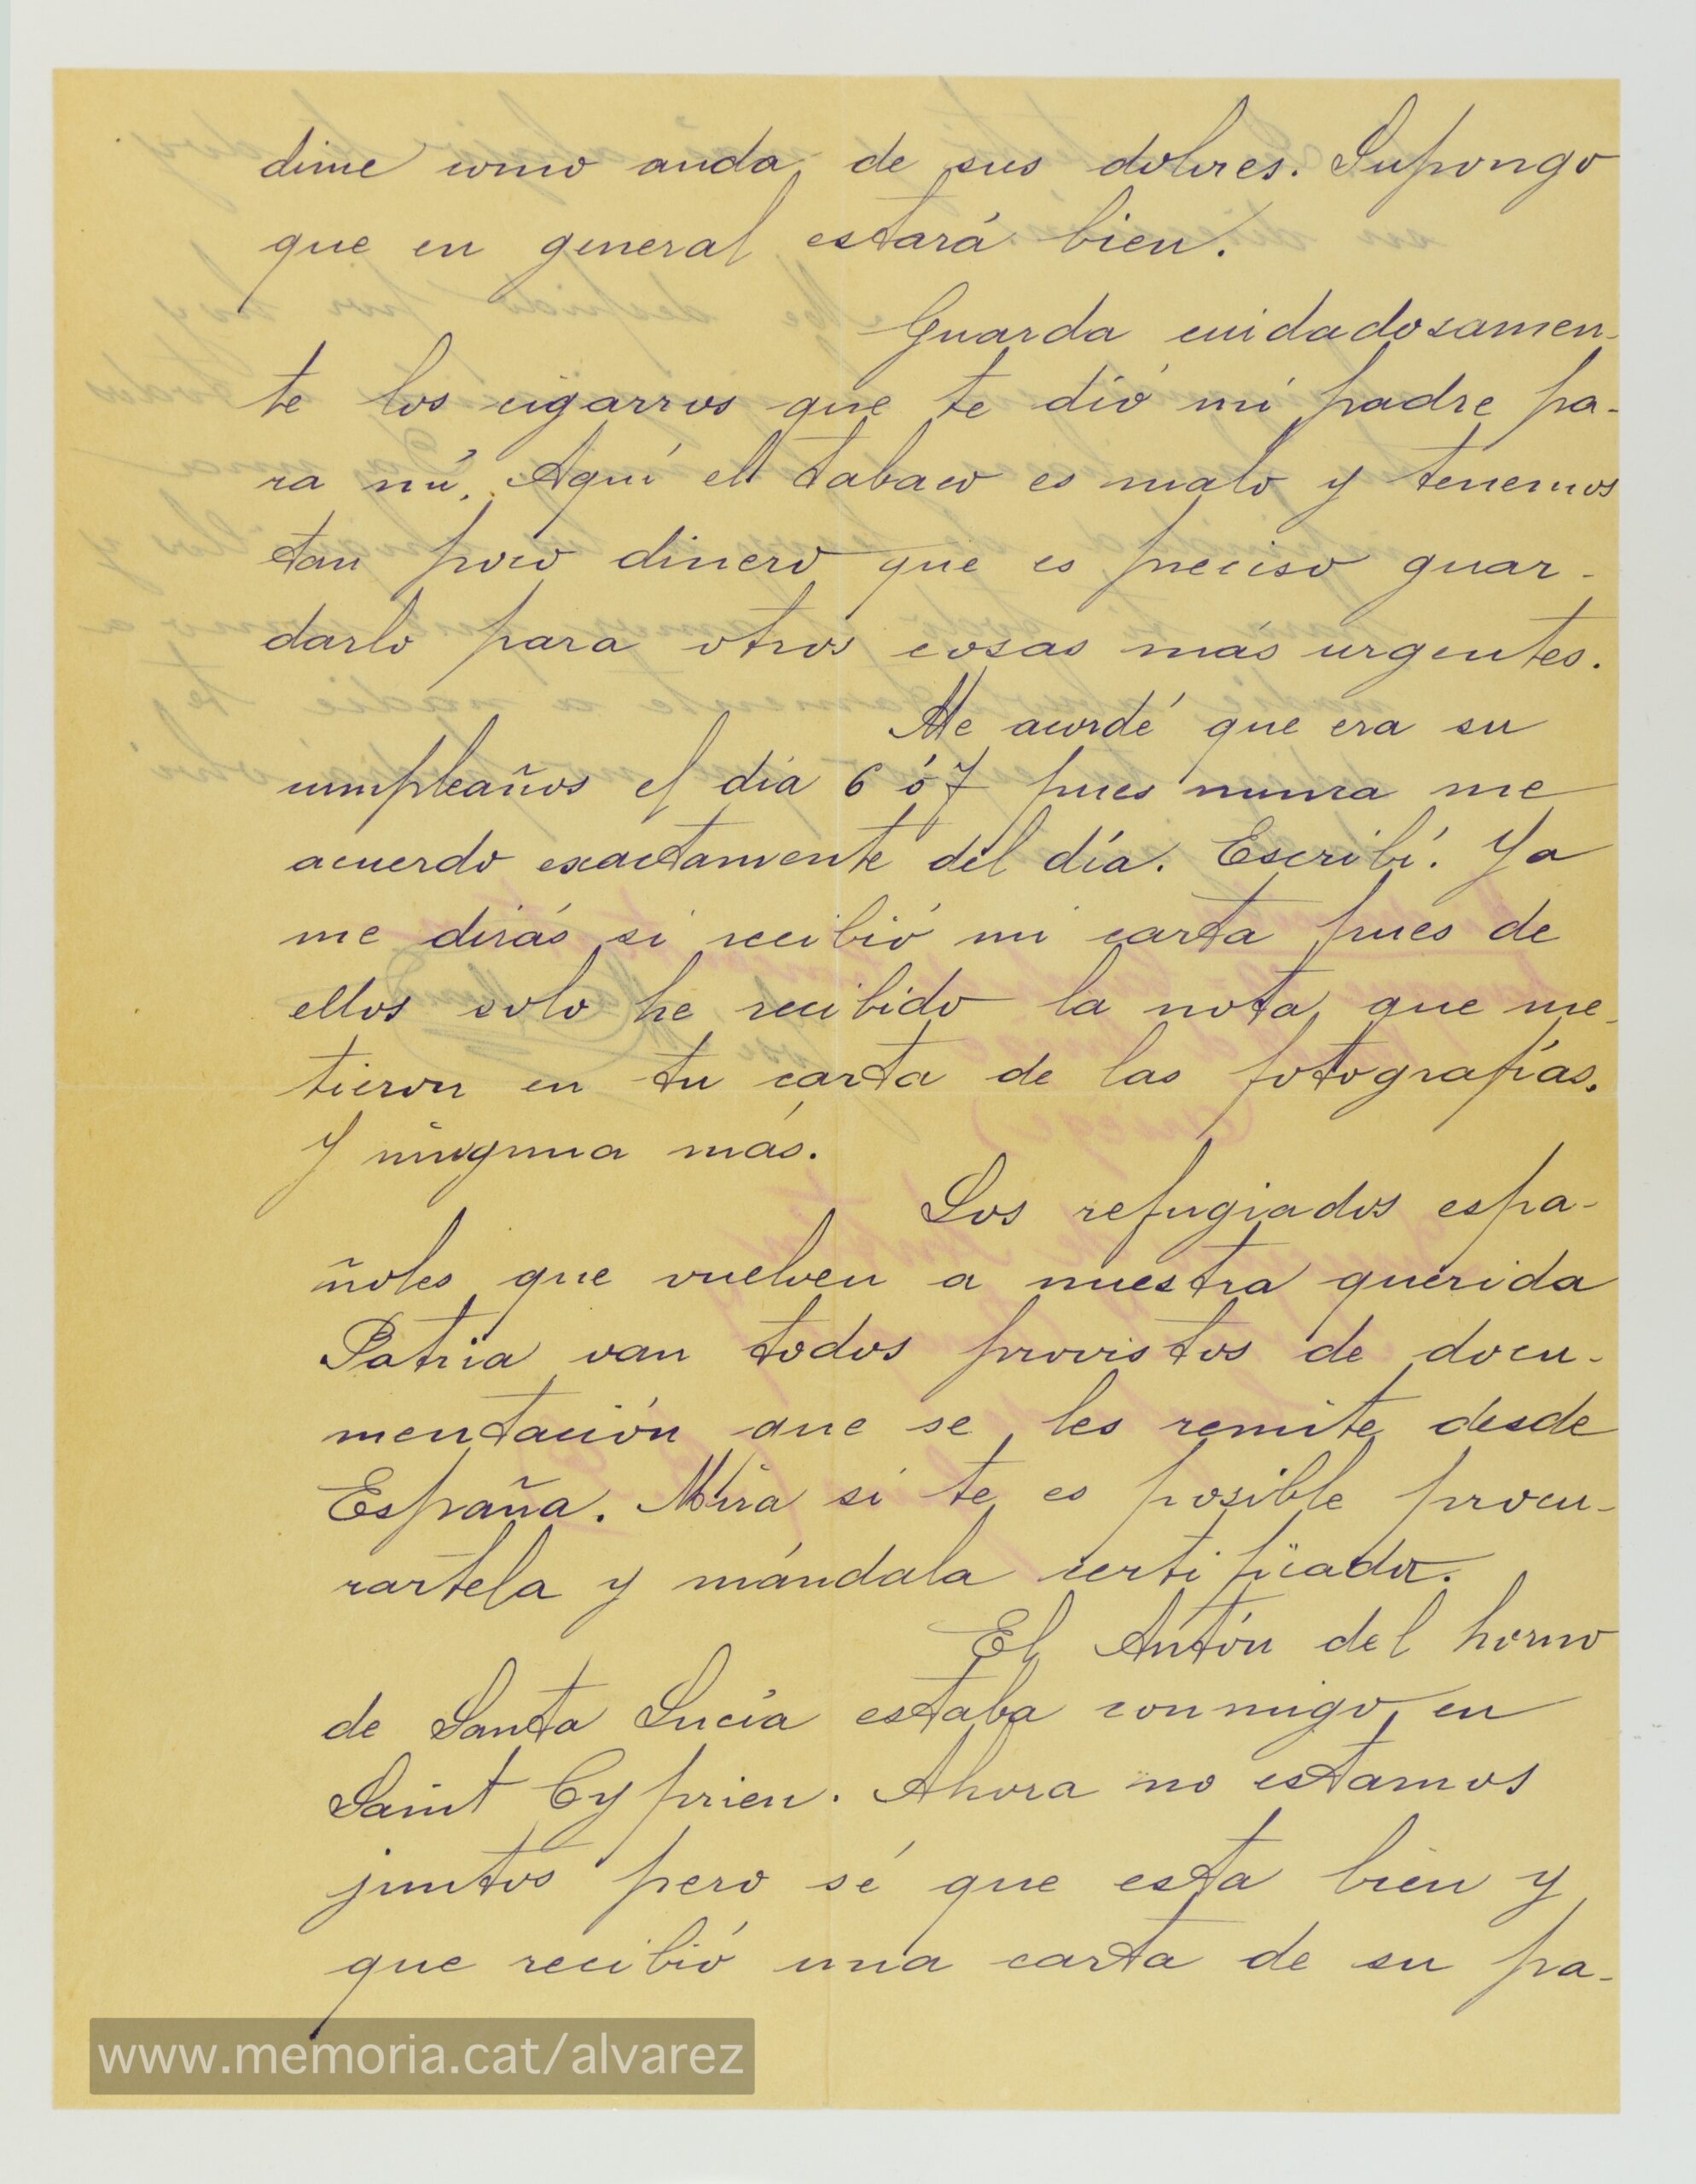 dime como anda de sus dolores. Supongo
que en general estará bien.
Guarda cuidadosamen-
te los cigarros que te dió mi padre pa-
ra mí. Aquí el tabaco es malo y tenemos
tan poco dinero que es preciso guar-
darlo para otros cosas más urgentes.
Me acordé que era su
cumpleaños el día 6 ó 7 pues nunca me
acuerdo exactamente del día. Escribí. Ya
me dirás si recibió mi carta pues de
ellos solo he recibido la nota que me-
tieron en tu carta de las fotografías.
Y ninguna más.
Los refugiados espa-
ñoles que vuelven a nuestra querida
Patria van todos provistos de docu-
mentación que se les remite desde
España. Mira si te es posible procu-
rartela y mándala certificada.
El Antón del horno
de Santa Lucía estaba conmigo en
Saint Cyprien. Ahora no estamos
juntos pero sé que esta bien y
que recibió una carta de su pa-
www.memoria.cat/alvarez